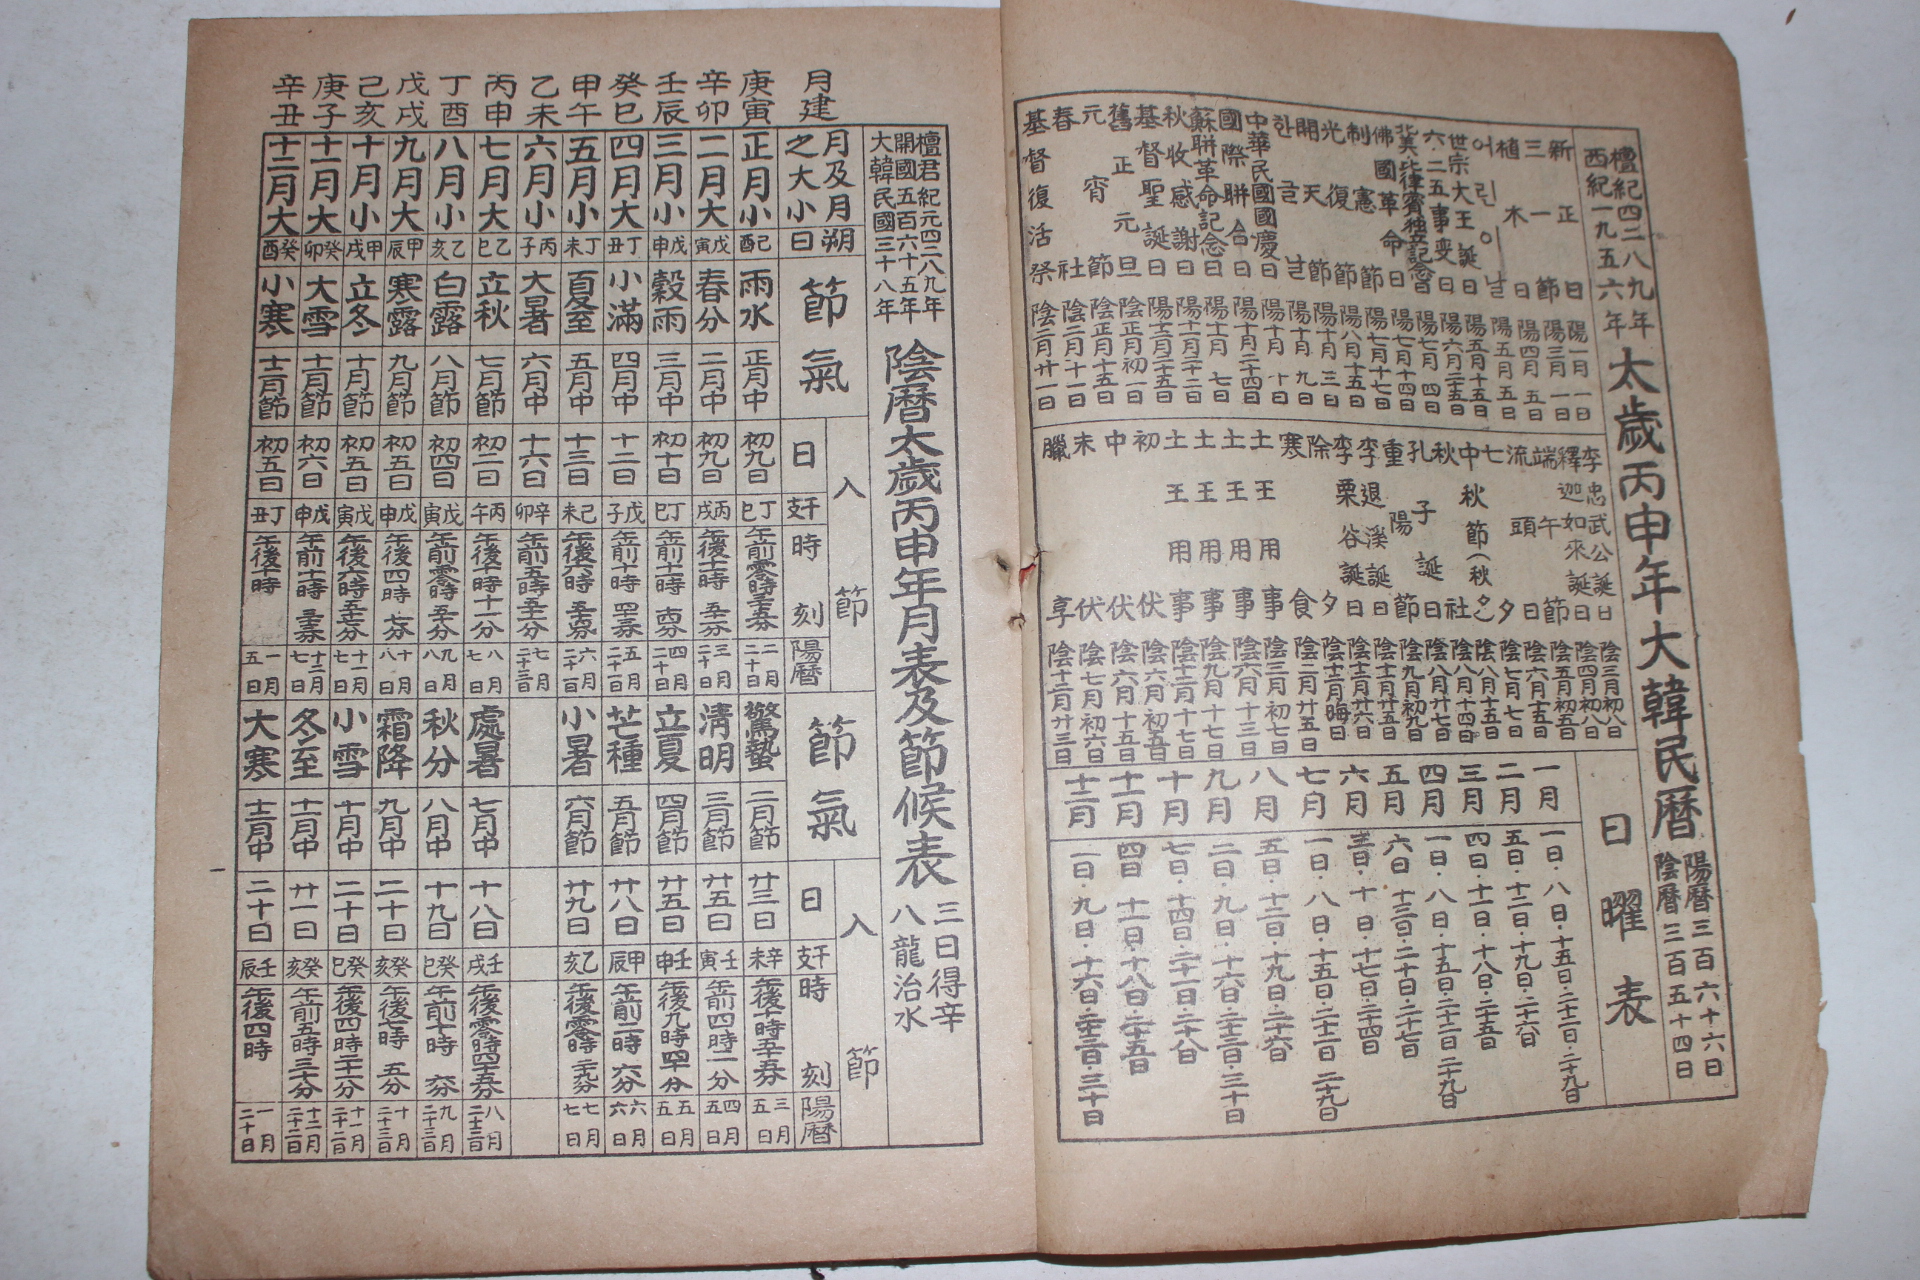 檀紀四二八九年
西紀一九五六年
太歲丙申年大韓民曆
陽曆三百六十六日
陰曆三百五十四日
新正日 陽一月一日
三一節 陽三月一日
植木日 陽四月五日
어린이날 陽五月五日
世宗大王誕日 陽五月十五日
六·二五事変日 陽六月二十五日
陽七月四日
佛國革命日 陽七月十四日
制憲節 陽七月十七日
光復節 陽八月十五日
開天節 陽十月三日
한글날 陽十月九日
中華民國國慶日 陽十月十日
國際聯合日 陽十月二十四日
蘇聯革命記念日 陽十一月七日
秋收感謝日 陽十一月二十二日
基督聖誕日 陽十二月二十五日
舊正元旦 陰正月初一日
元宵節 陰正月十五日
春社 陰二月十一日
基督復活祭 陰二月廿一日
李忠武公誕日 陰三月初八日
釋迦如來誕日 陰四月初八日
端午節 陰五月初五日
流頭日 陰六月十五日
七夕 陰七月七日
中秋節(秋夕) 陰八月十五日
秋社 陰八月十四日
孔子誕日 陰八月廿七日
重陽節 陰九月初九日
李退溪誕日 陰十一月廿五日
李栗谷誕日 陰十二月廿六日
除夕 陰十二月晦日
寒食 陰二月廿五日
土王用事 陰三月初七日
土王用事 陰六月十三日
土王用事 陰九月十七日
土王用事 陰十二月十七日
初伏 陰六月初五日
中伏 陰六月十五日
末伏 陰七月初六日
臘享 陰十二月廿三日
日曜表
一月 一日·八日·十五日·二十二日·二十九日
二月 五日·十二日·十九日·二十六日
三月 四日·十一日·十八日·二十五日
四月 一日·八日·十五日·二十二日·二十九日
五月 六日·十三日·二十日·二十七日
六月 三日·十日·十七日·二十四日
七月 一日·八日·十五日·二十二日·二十九日
八月 五日·十二日·十九日·二十六日
九月 二日·九日·十六日·二十三日·三十日
十月 七日·十四日·二十一日·二十八日
十一月 四日·十一日·十八日·二十五日
十二月 二日·九日·十六日·二十三日·三十日
檀君紀元四二八九年
開國五百六十五年
大韓民國三十八年
陰曆太歲丙申年月表及節候表
三日得辛
八龍治水
月建 月及月之大小 朔日 節氣 入節 日 干支 時刻 陽曆 節氣 入節 日 干支 時刻 陽曆
庚寅 正月小 己酉 雨水 正月中 初九日 丁巳 午前零時三十五分 二月二十日 驚蟄 二月節 廿三日 辛未 午後十時五十五分 三月五日
辛卯 二月大 戊寅 春分 二月中 初九日 丙戌 午後十一時五十一分 三月二十日 淸明 三月節 廿五日 壬寅 午前四時二分 四月五日
壬辰 三月小 戊申 穀雨 三月中 初十日 丁巳 四月二十日 立夏 四月節 廿五日 壬申 五月五日
癸巳 四月大 丁丑 小滿 四月中 十二日 戊子 五月二十一日 芒種 五月節 廿八日 甲辰 午前二時六分 六月六日
甲午 五月小 丁未 夏至 五月中 十三日 己未 六月二十一日 小暑 六月節 廿九日 乙亥 七月七日
乙未 六月小 丙子 大暑 六月中 十六日 辛卯 七月二十三日
丙申 七月大 乙巳 立秋 七月節 初二日 丙午 午後十時十一分 八月七日 處暑 七月中 十八日 壬戌 午後零時四十五分 八月二十三日
丁酉 八月小 乙亥 白露 八月節 初四日 戊寅 九月八日 秋分 八月中 十九日 癸巳 午前十時六分 九月二十三日
戊戌 九月大 甲辰 寒露 九月節 初五日 戊申 午後四時七分 十月八日 霜降 九月中 二十日 癸亥 午後七時五分 十月二十三日
己亥 十月小 甲戌 立冬 十月節 初五日 戊寅 十一月七日 小雪 十月中 二十日 癸巳 十一月二十二日
庚子 十一月大 癸卯 大雪 十一月節 初六日 戊申 十二月七日 冬至 十一月中 廿一日 癸亥 午前五時三十分 十二月二十二日
辛丑 十二月大 癸酉 小寒 十二月節 初五日 丁丑 午後十時 一月五日 大寒 十二月中 二十日 壬辰 午後四時 一月二十日
一